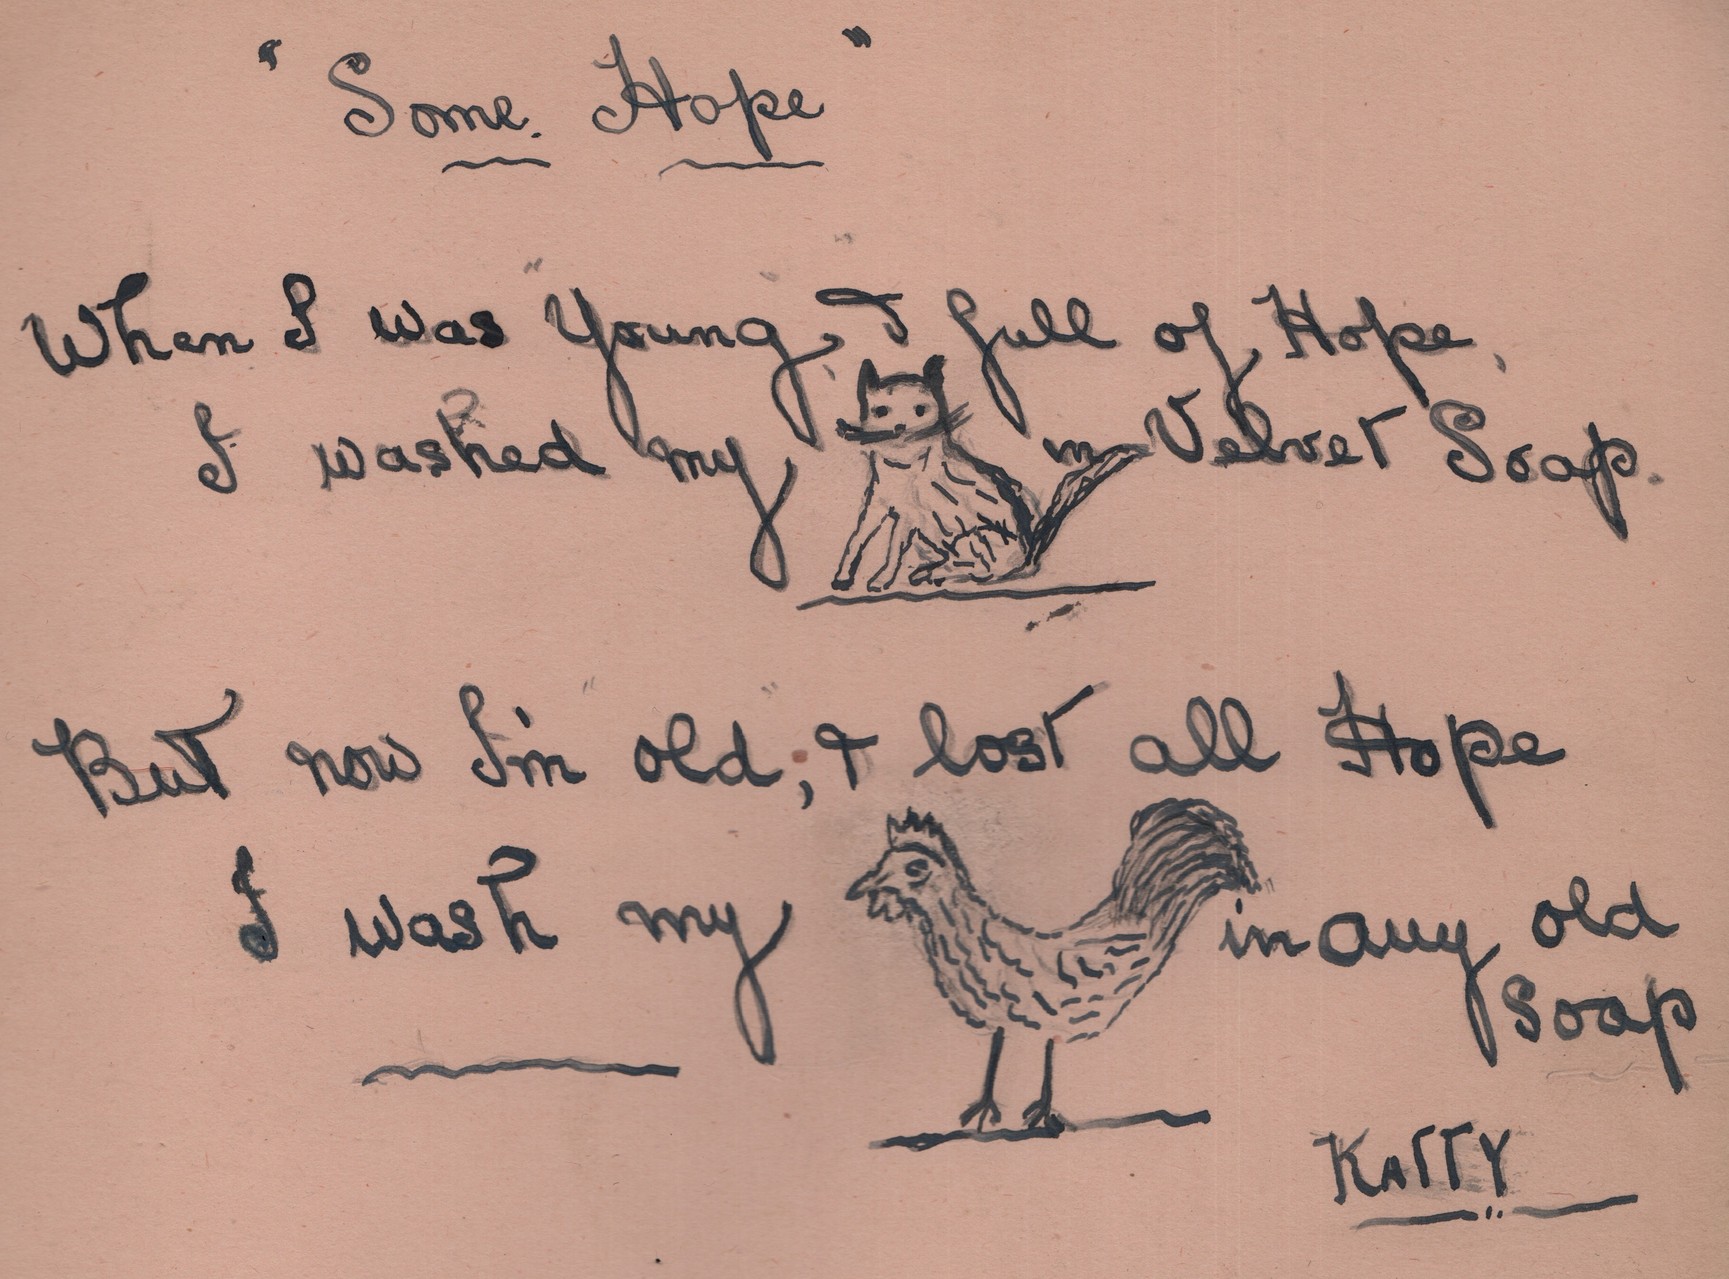 "Some. Hope"
When I was Young, & full of Hope,
I washed my in Velvet Soap.
But now I'm old, & lost all Hope
I wash my in any old
Soap
KATTY